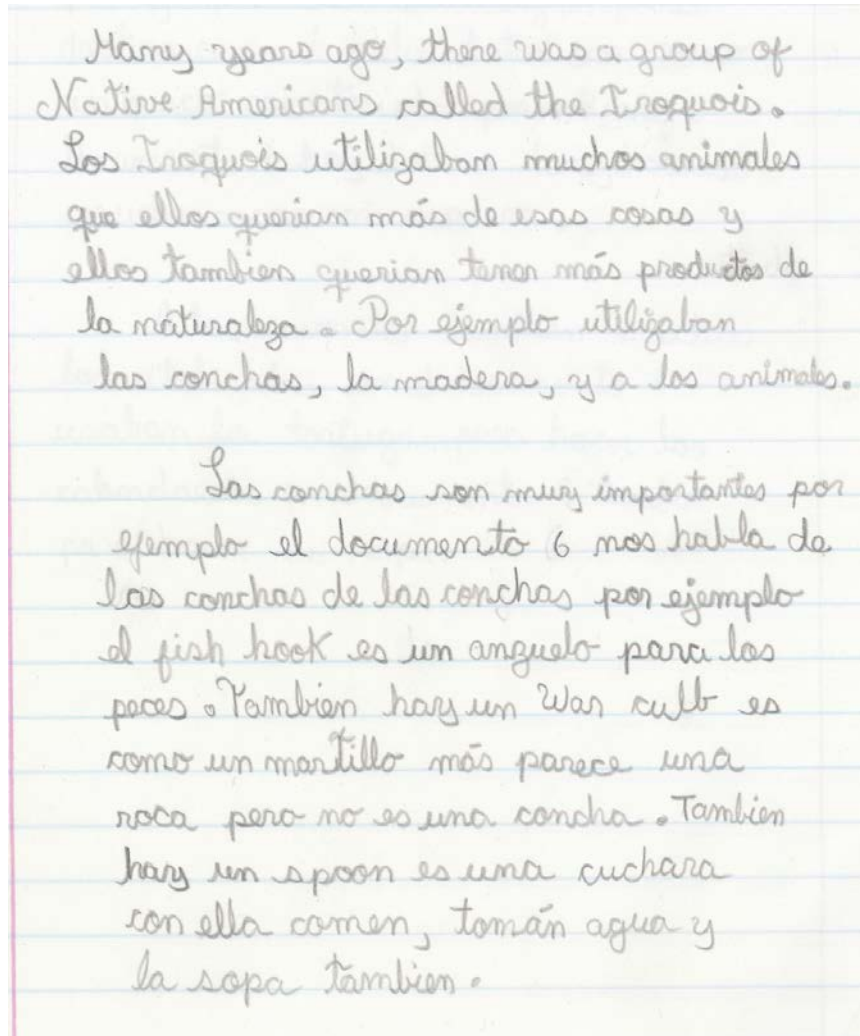 Many years ago, there was a group of
Native Americans called the Iroquois.
Los Iroquois utilizaban muchos animales
que ellos querian más de esas cosas y
ellos tambien querian tener más productos de
la naturaleza. Por ejemplo utilizaban
las conchas, la madera, y a los animales.
Las conchas son muy importantes por
ejemplo el documento 6 nos habla de
las conchas de las conchas por ejemplo
el fish hook es un anguelo para los
peces. Tambien hay un War culb es
como un martillo más parece una
roca pero no es una concha. Tambien
hay un spoon es una cuchara
con ella comen, tomán agua y
la sopa tambien.